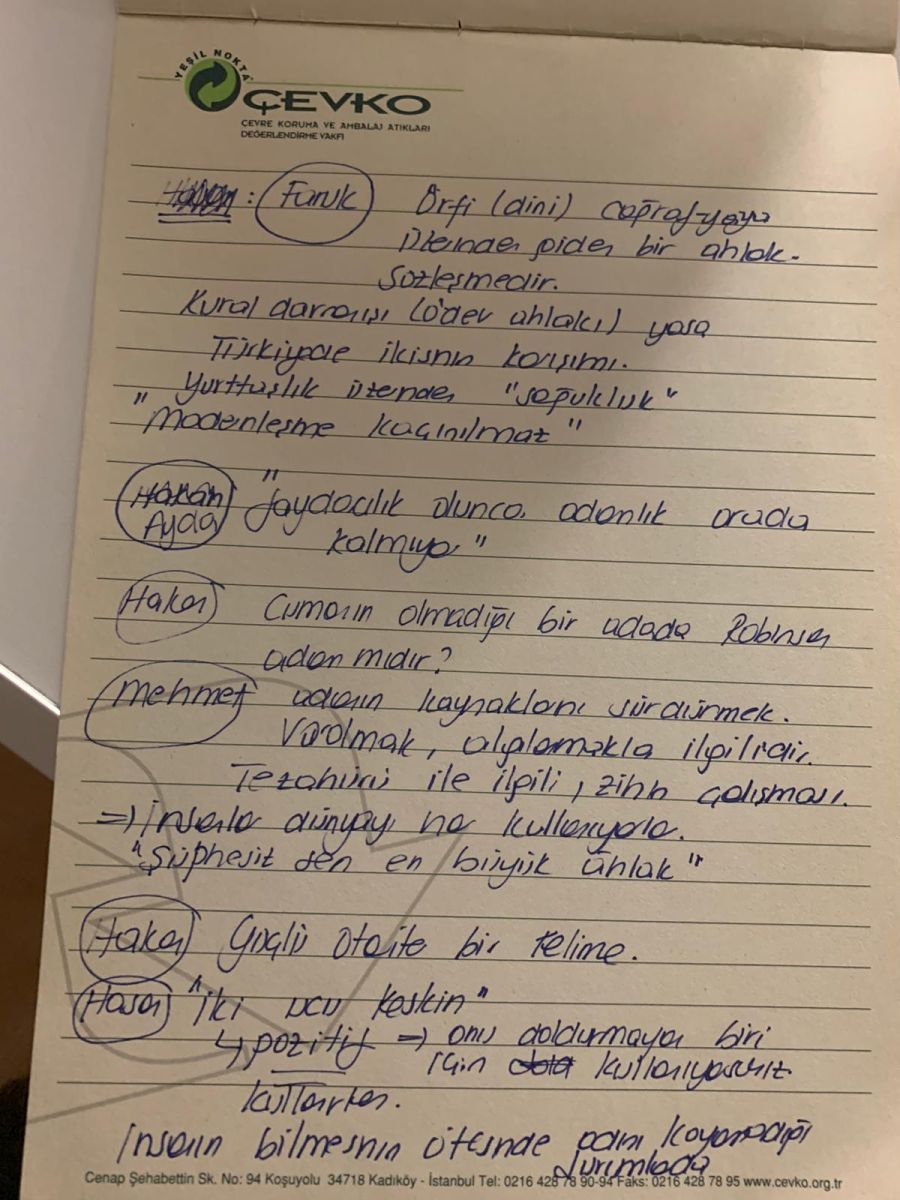 YEŞİL NOKTA
ÇEVKO
ÇEVRE KORUMA VE AMBALAJ ATIKLARI
DEĞERLENDİRME VAKFI
: Faruk Örfi (dini) coğrafyaya
üzerinden giden bir ahlak.
Sözleşmedir.
Kural davranışı (ödev ahlakı) yasa
Türkiyede ikisinin karışımı.
Yurttaşlık üzerinden "soğukluk"
"Modernleşme kaçınılmaz"
Hakan Ayda "faydacılık olunca, adanlık orada
kalmıyor"
Hakan Cumanın olmadığı bir adada Robinson
adan mıdır?
Mehmet adanın kaynaklarını sürdürmek.
Varolmak, algılamakla ilgilidir.
Tezahürü ile ilgili, zihin çalışması.
=> İnsanlar dünyayı kullanıyorlar.
"Şüphesiz sen en büyük ahlak"
Hakan Güçlü otorite bir kelime.
Hasan "İki ucu keskin"
↳ pozitif => onu doldurmayan biri
için kullanıyorsunuz.
kullanırken.
İnsanın bilmesinin ötesinde koyamadığı
durumlarda
Cenap Şehabettin Sk. No: 94 Koşuyolu 34718 Kadıköy - İstanbul Tel: 0216 428 78 90-94 Faks: 0216 428 78 95 www.cevko.org.tr